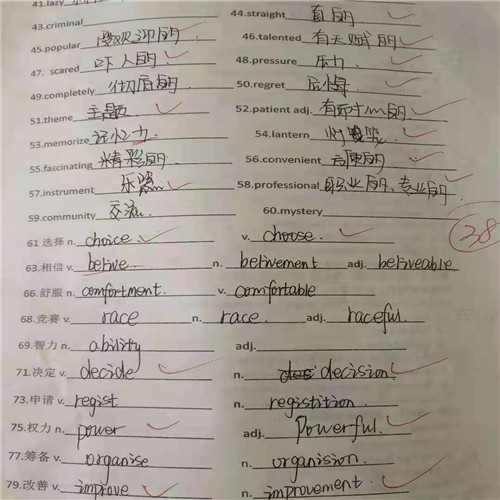 41.lazy
43.criminal
44.straight 直的
45.popular 受欢迎的
46.talented 有天赋的
47. scared 吓人的
48.pressure 压力
49.completely 彻底的
50.regret 后悔
51.theme 主题
52.patient adj. 有耐心的
53.memorize 记忆力
54.lantern 灯笼
55.fascinating 精彩的
56.convenient 方便的
57.instrument 乐器
58.professional 职业的、专业的
59.community 交流
60.mystery
38
61 选择 n. choice v. choose
63.相信 v. belive n. belivement adj. beliveable
66.舒服 n. comfortment v. comfortable
68.竞赛 v. race n. race adj. raceful
69.智力 n. ability adj.
71.决定 v. decide n. decision
73.申请 v. regist n. registition
75.权力 n. power adj. Powerful
77.筹备 v. organise n. organision
79.改善 v. improve n. improvement